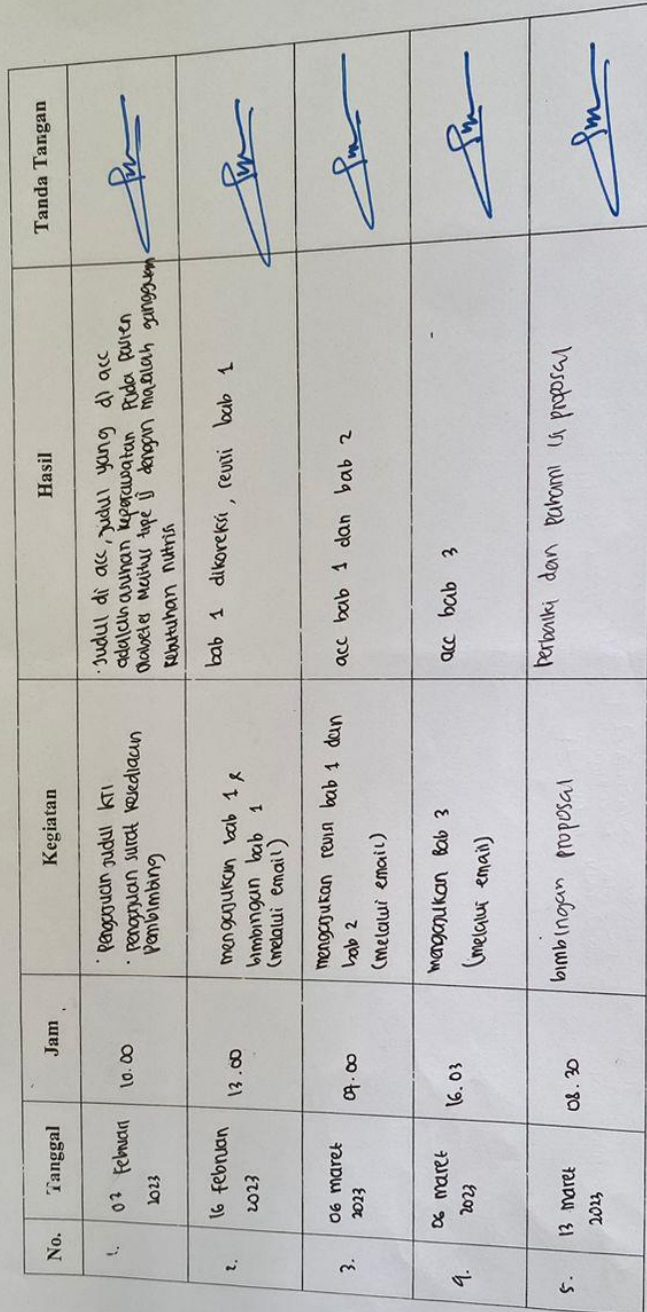 No. Tanggal Jam Kegiatan Hasil Tanda Tangan
1.
03 Februari
2023
10.00
· Pengajuan judul KTI
· Pengajuan surat kesediaan
Pembimbing
· Judul di acc, judul yang di acc
adalah asuhan keperawatan Pada Pasien
Diabetes Melitus tipe II dengan masalah gangguan
kebutuhan nutrisi
2.
16 Februari
2023
13.00
mengajukan bab 1 &
bimbingan bab 1
(melalui email)
bab 1 dikoreksi, revisi bab 1
3.
06 maret
2023
09.00
mengajukan revisi bab 1 dan
bab 2
(melalui email)
acc bab 1 dan bab 2
4.
06 maret
2023
16.03
mengajukan Bab 3
(melalui email)
acc bab 3
5.
13 maret
2023
08.30
bimbingan proposal
Perbaiki dan Pahami isi proposal